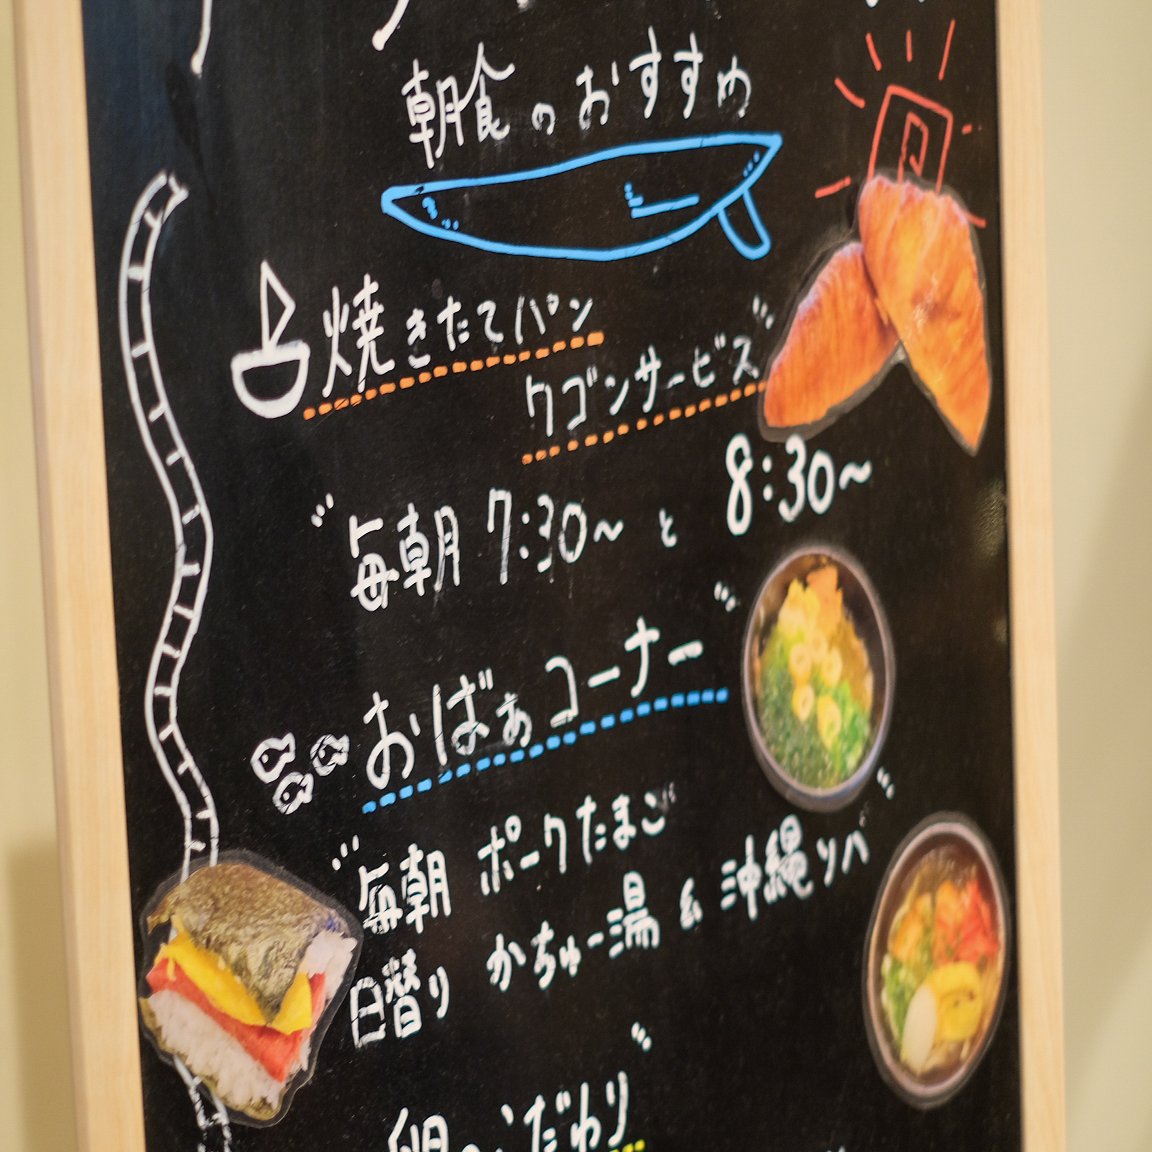 朝食のおすすめ
焼きたてパン
ワゴンサービス
毎朝 7:30~ と 8:30~
おばぁコーナー
毎朝 ポークたまご
日替り かちゅー湯 & 沖縄ソバ
卵のこだわり